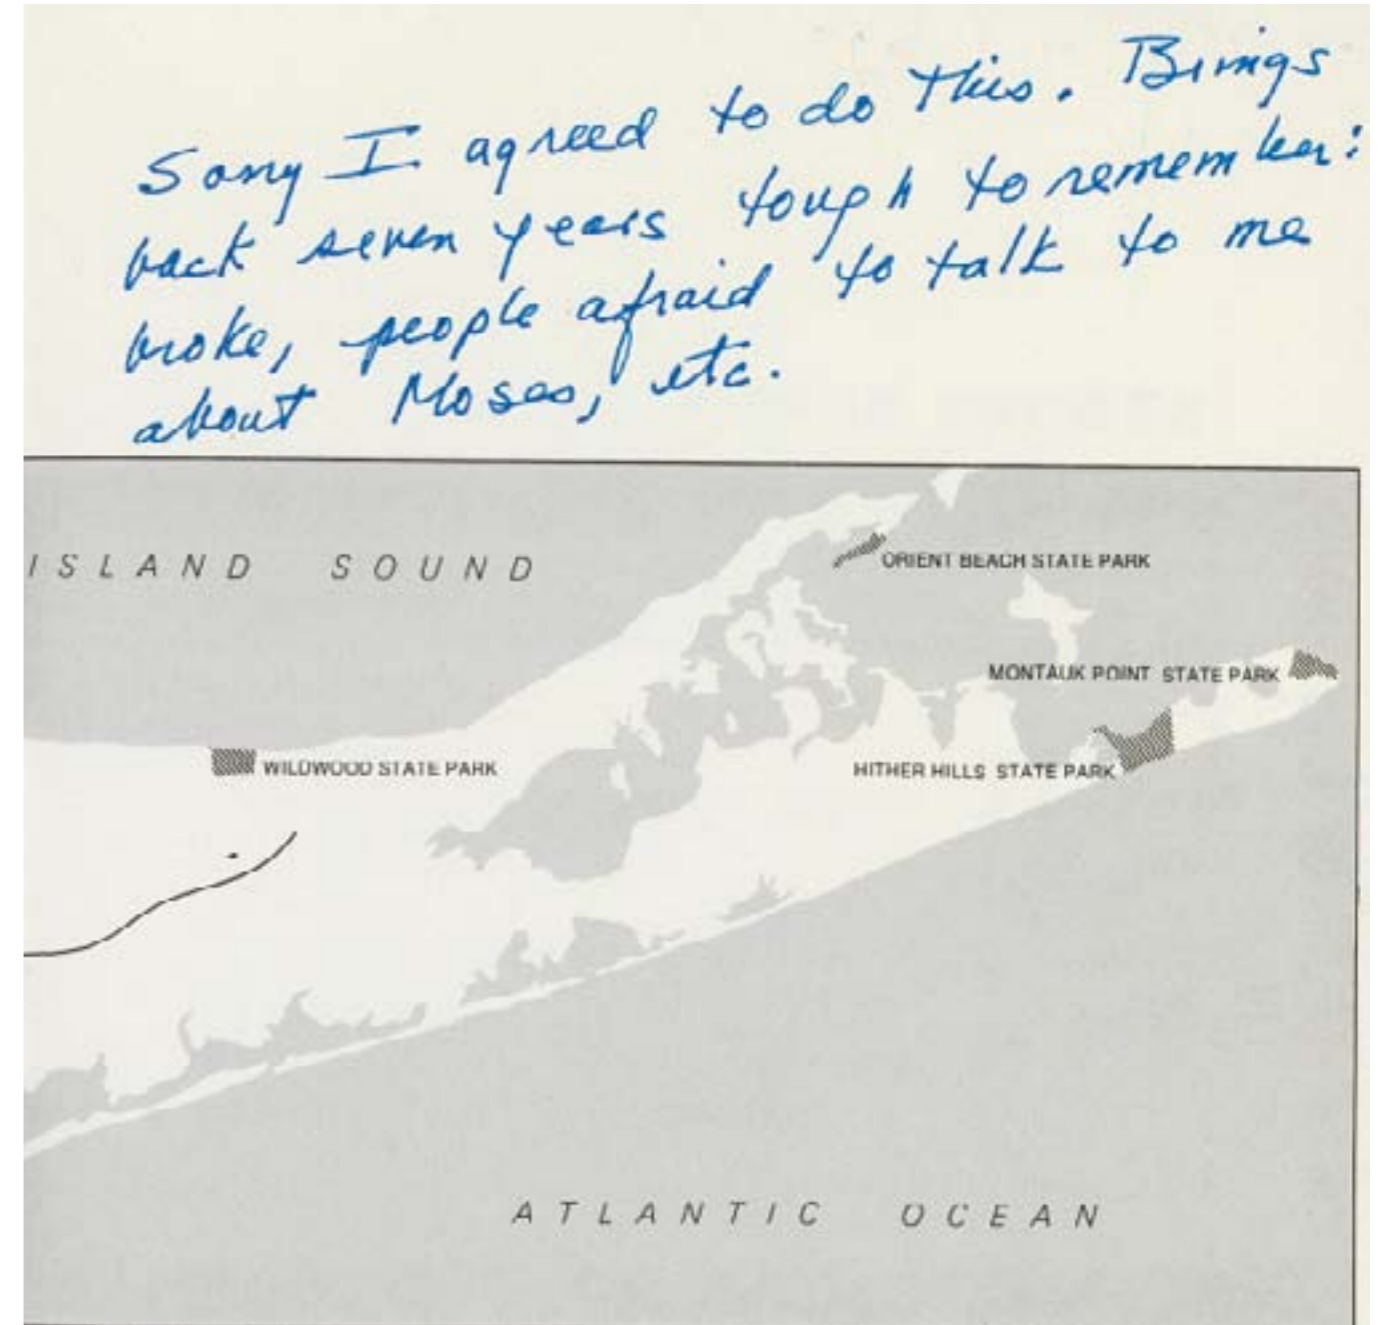 Sorry I agreed to do this. Brings
back seven years tough to remember:
broke, people afraid to talk to me
about Moses, etc.
ISLAND SOUND
ORIENT BEACH STATE PARK
MONTAUK POINT STATE PARK
WILDWOOD STATE PARK
HITHER HILLS STATE PARK
ATLANTIC OCEAN